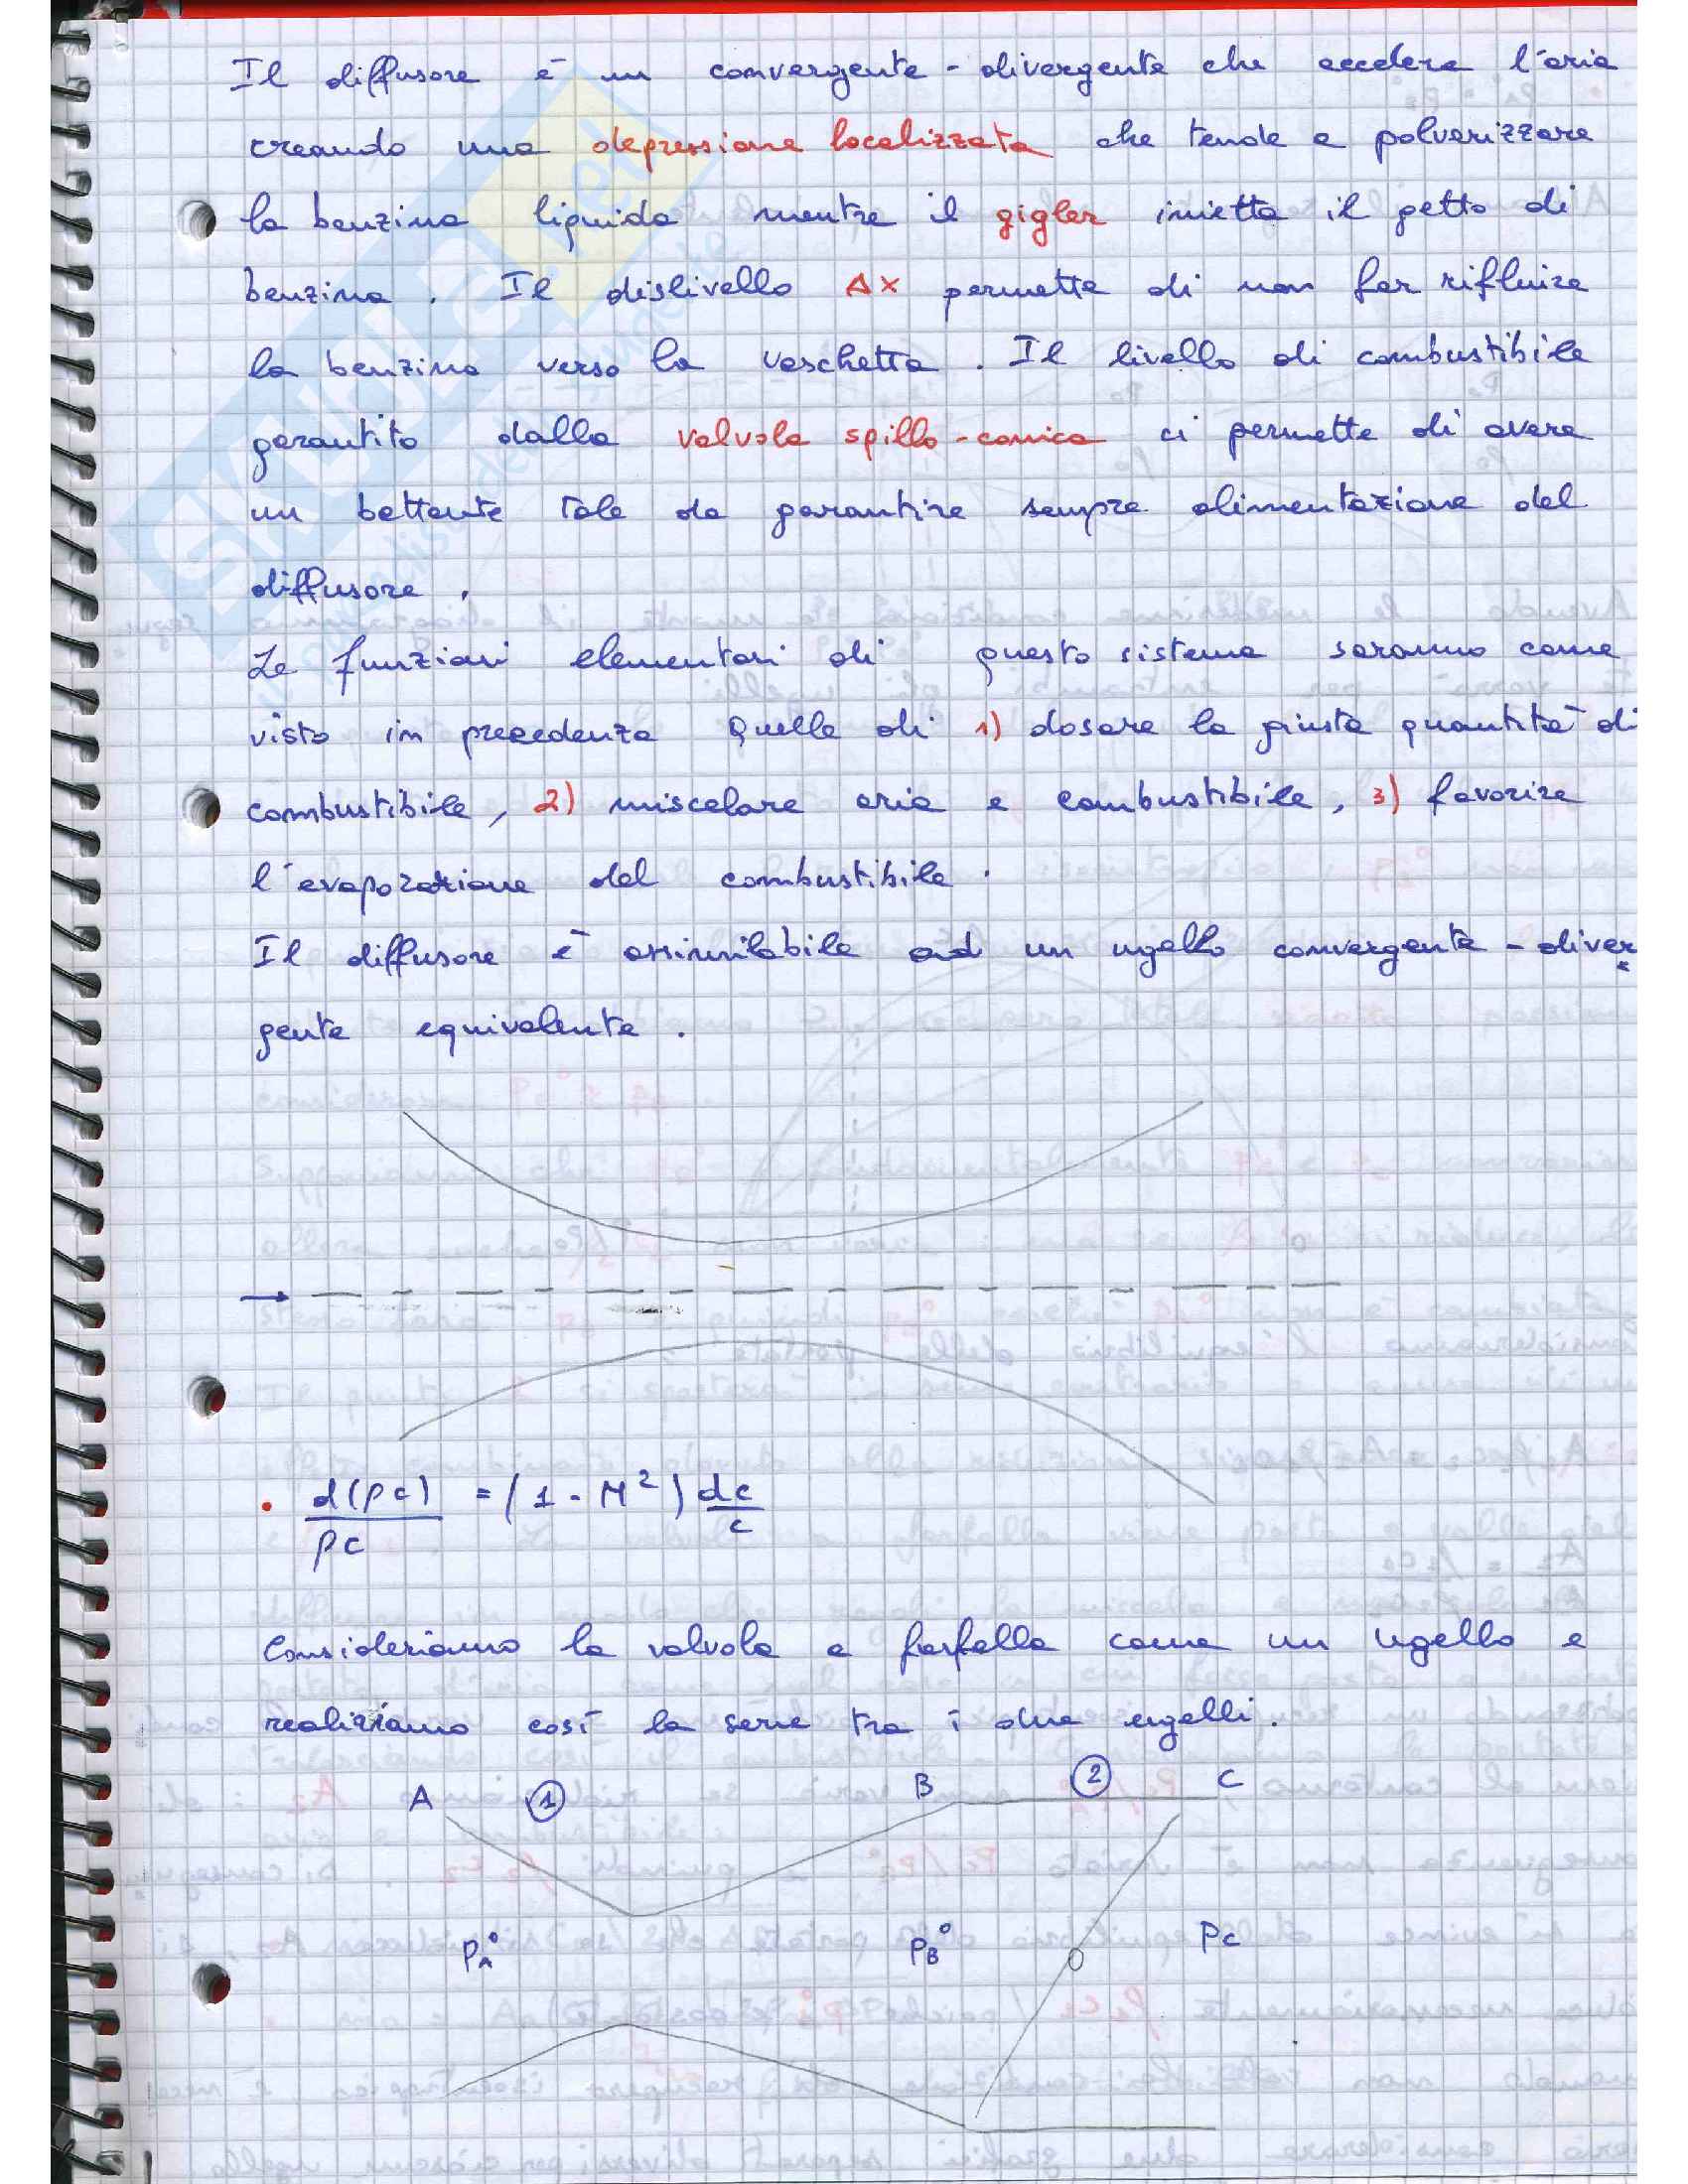 Il diffusore è un convergente - divergente che accelera l'aria
creando una depressione localizzata che tende a polverizzare
la benzina liquida mentre il gigler inietta il getto di
benzina. Il dislivello Δx permette di non far rifluire
la benzina verso la vaschetta. Il livello di combustibile
garantito dalla valvola spillo-conica ci permette di avere
un battente tale da garantire sempre alimentazione del
diffusore.
Le funzioni elementari di questo sistema saranno come
visto in precedenza quelle di 1) dosare la giusta quantità di
combustibile, 2) miscelare aria e combustibile, 3) favorire
l'evaporazione del combustibile.
Il diffusore è assimilabile ad un ugello convergente - diver
gente equivalente.
• d(ρc)/ρc = (1 - M²) dc/c
Consideriamo la valvola a farfalla come un ugello e
realizziamo così la serie tra i due ugelli.
A 1 B 2 C
PA° PB° Pc
SKUOLA.net